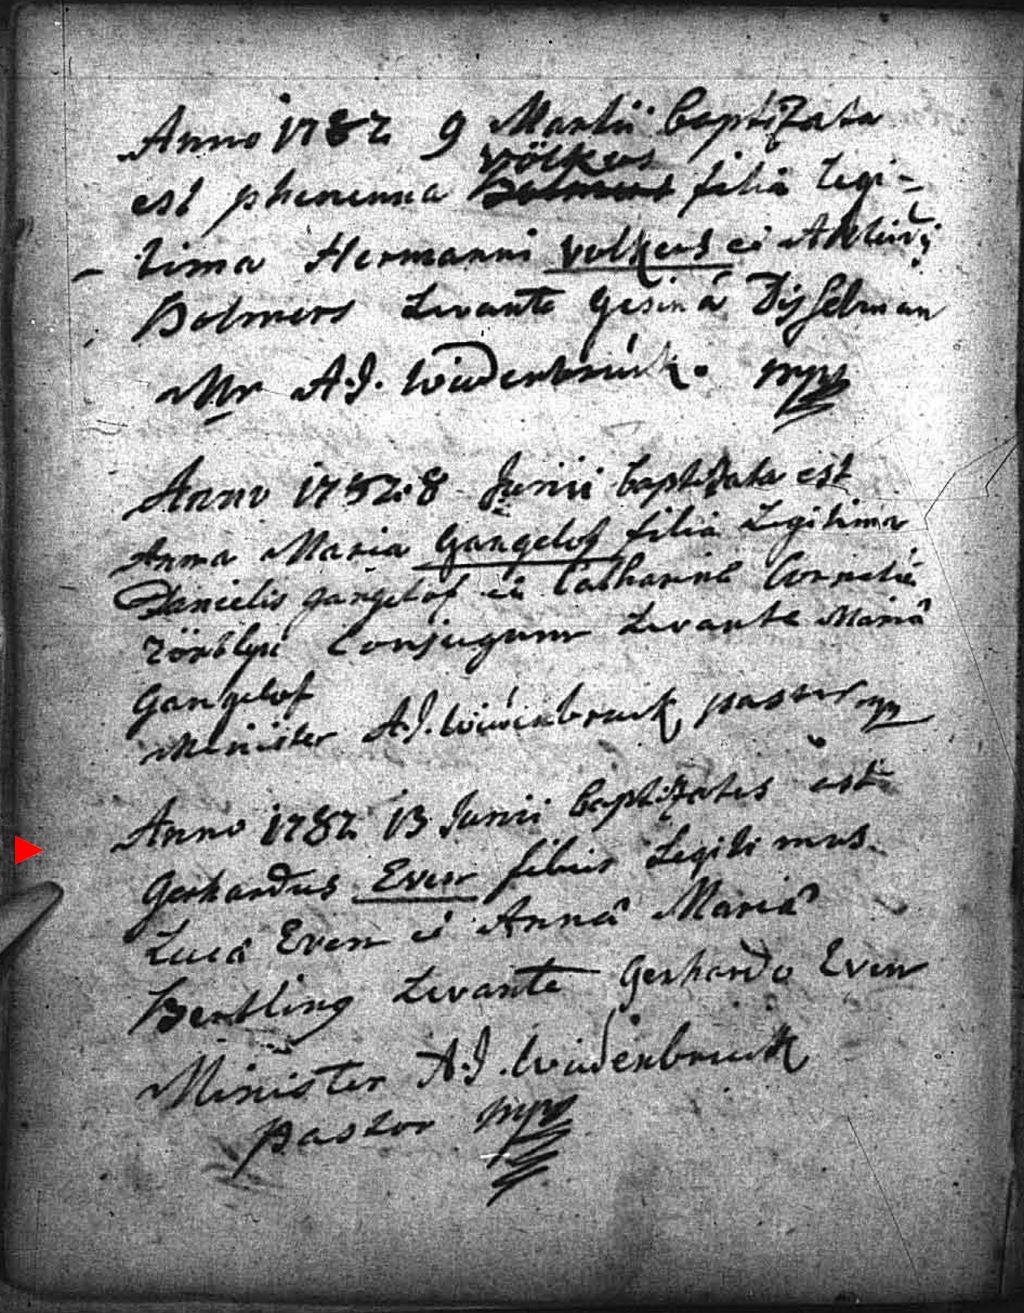 Anno 1782 9 Martii baptizata
völkers
est phenenna Bolmers filia legi-
tima Hermanni Volkers et
Bolmers Levante Gesina Disselman
Mr A.J. Widenbrück. mpp
Anno 1782. 8 Junii baptizata est
Anna Maria Gangelof filia Legitima
Danielis gangelof et Catharinae Corneliae
Conjugum Levante Mariâ
Gangelof
Minister A.J. Widenbruck pastor mpp
Anno 1782 13 Junii baptizatus est
Gerhardus Even filius Legitimus
Luca Even et Annâ Mariâ
Bentling Levante Gerhardo Even
Minister A.J. Widenbruck
pastor mpp